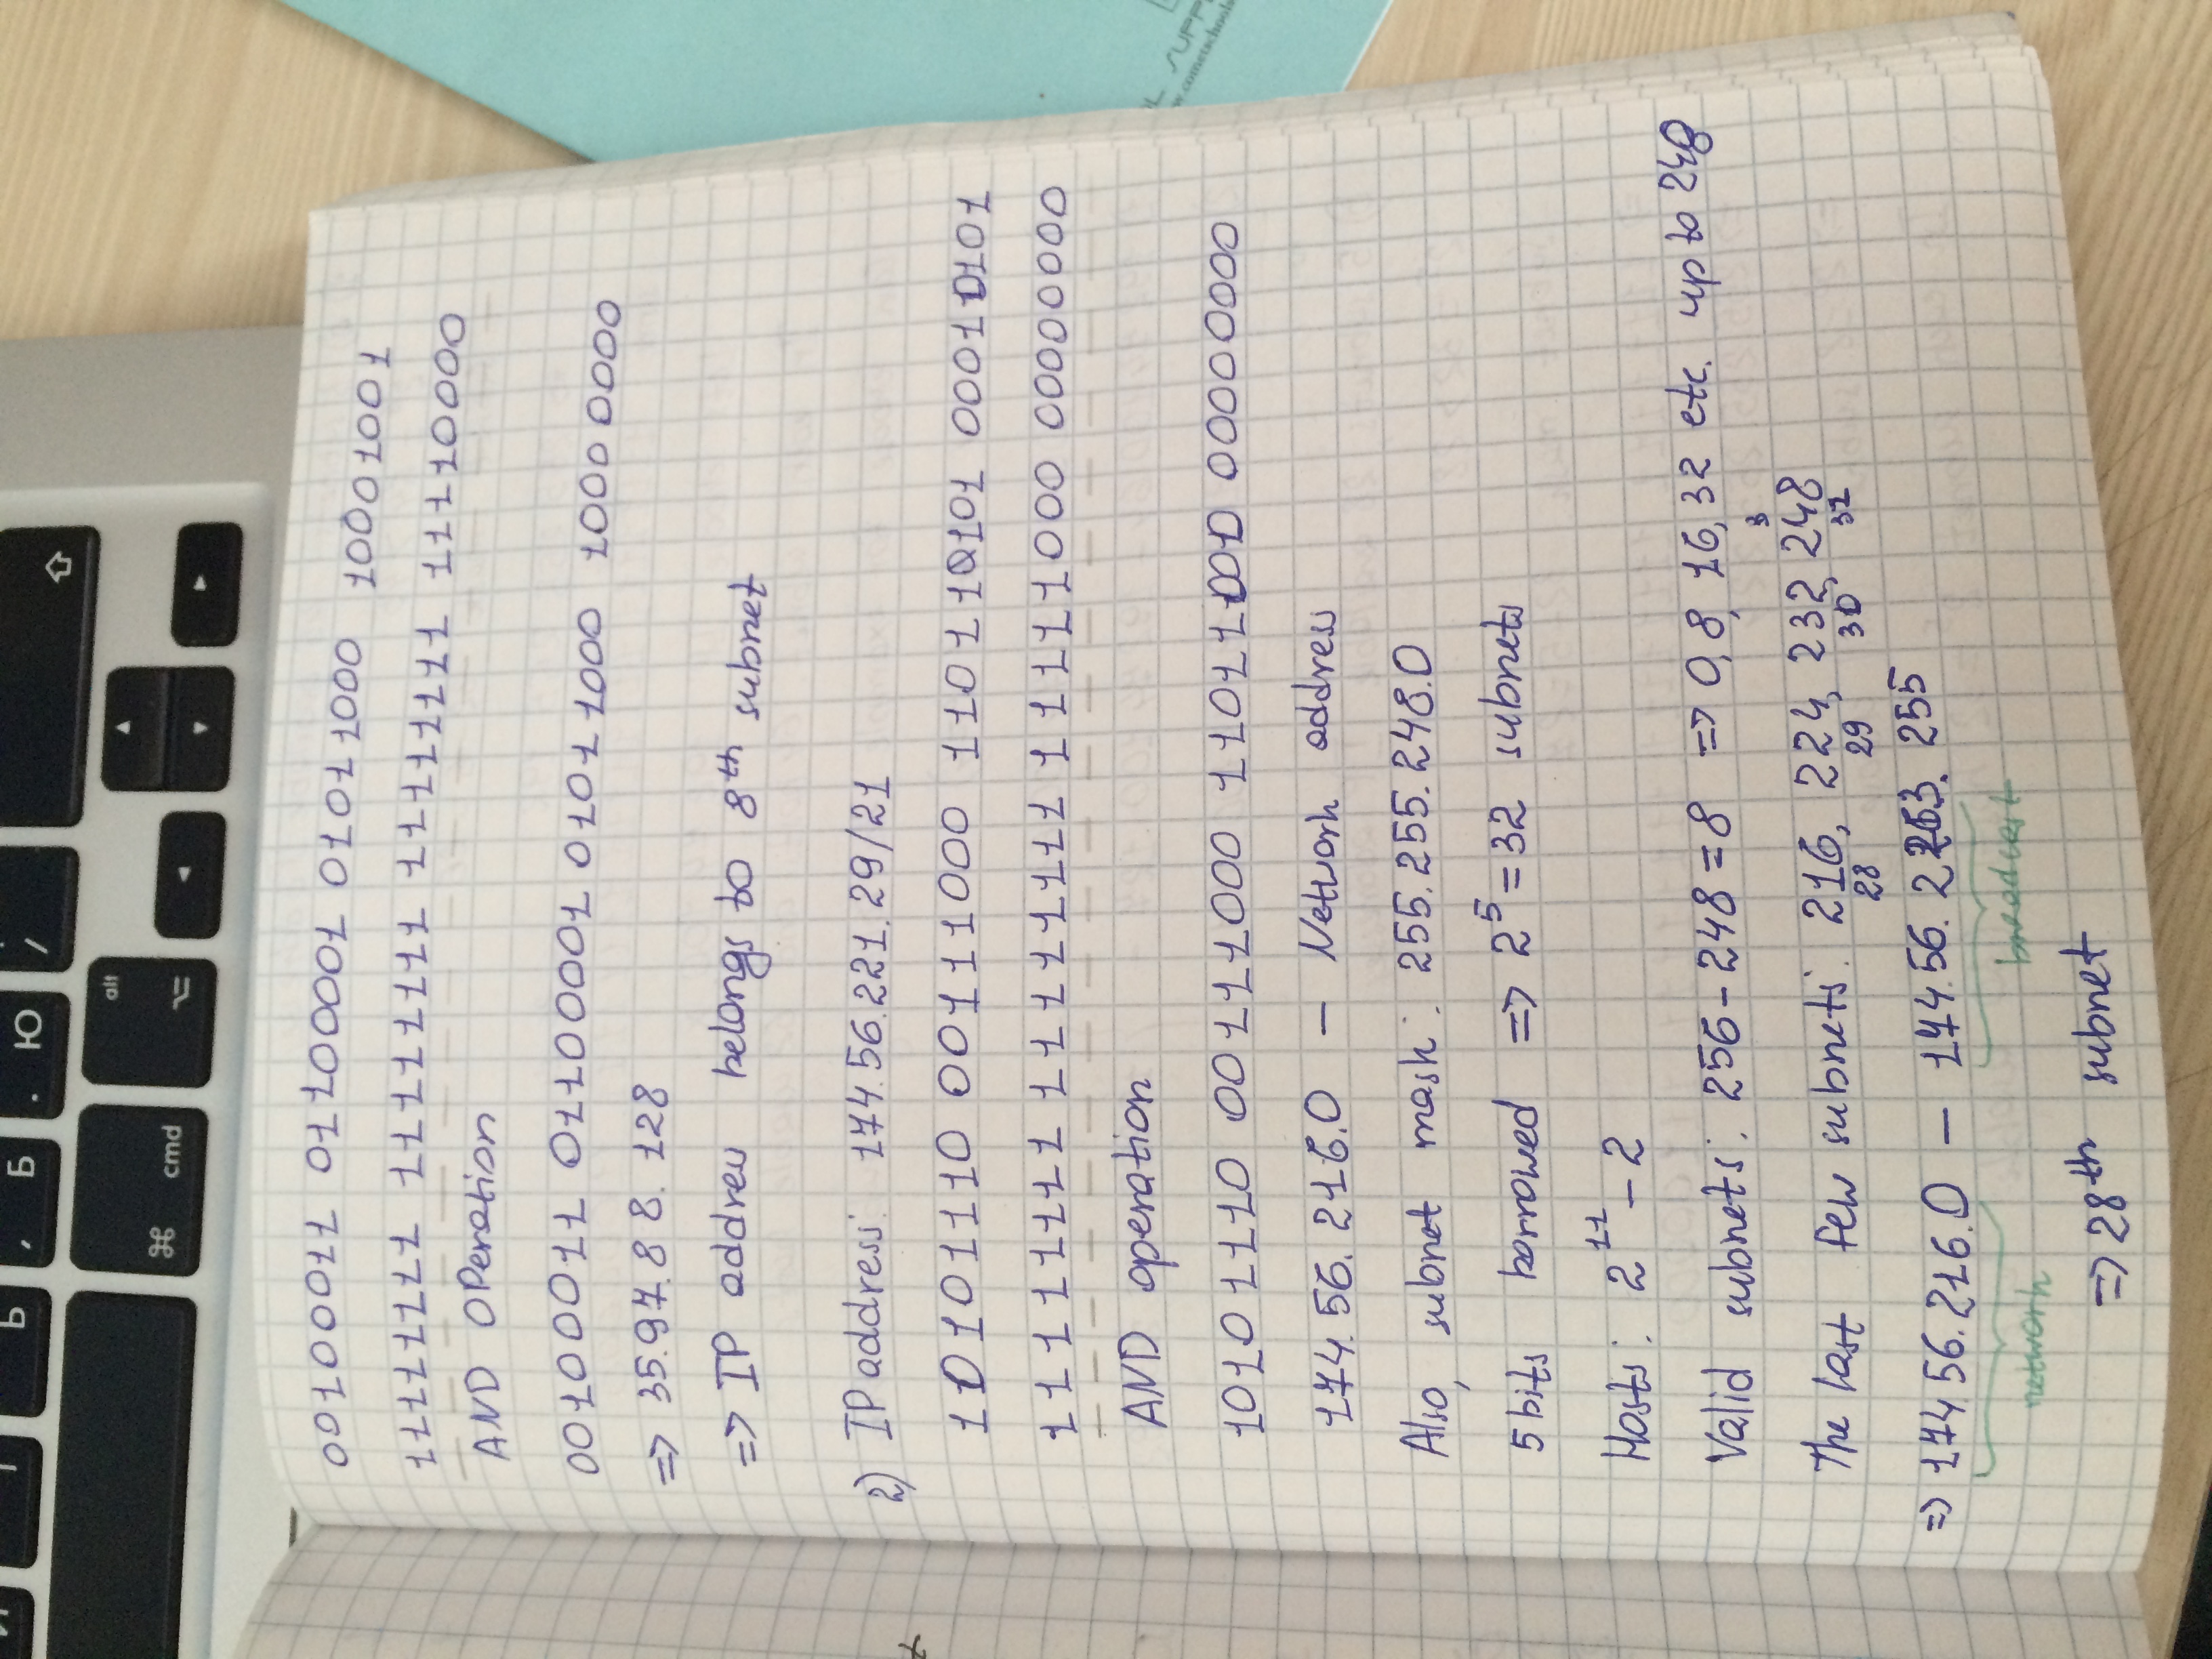 Ь , Б . Ю /
alt
cmd
00100011 01100001 01011000 10001001
11111111 11111111 11111111 11110000
AND OPeration
00100011 01100001 01011000 10000000
=> 35.97.88.128
=> IP address belongs to 8th subnet
2) IP address: 174.56.221.29/21
10101110 00111000 110110101 00010101
11111111 11111111 11111000 00000000
AND operation
10101110 00111000 11011000 00000000
174.56.216.0 – Network address
Also, subnet mask: 255.255.248.0
5 bits borrowed => 2^5 = 32 subnets
Hosts: 2^11 – 2
Valid subnets: 256 – 248 = 8 => 0, 8, 16, 32 etc. up to 248
The last few subnets: 216, 224, 232, 248
28 29 30 31
=> 174.56.216.0 – 174.56. 255
network broadcast
=> 28th subnet